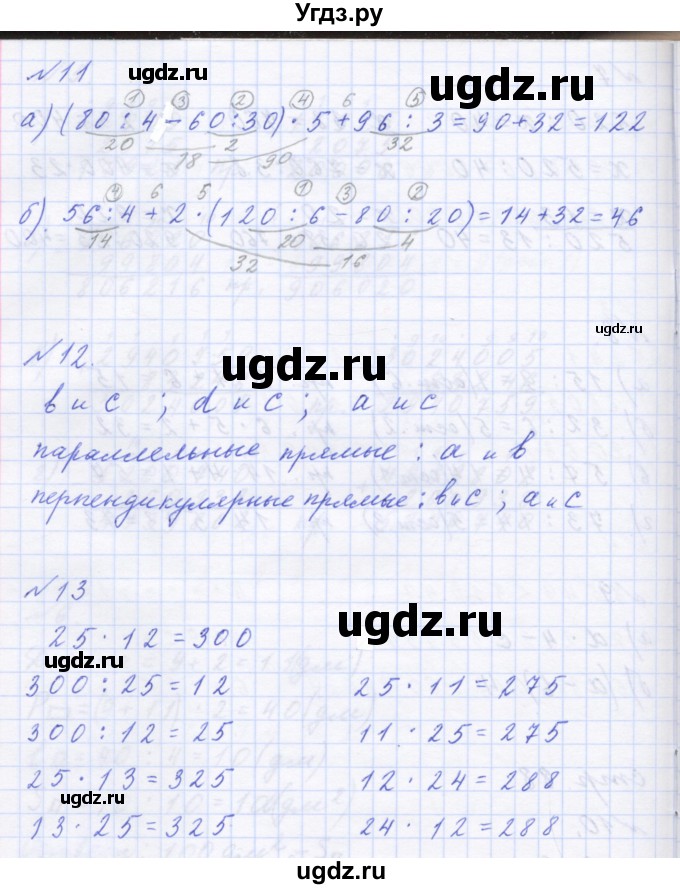 Угдз.ру
№11
ugdz.ru
ugdz.ru
① ③ ② ④ 6 ⑤
а) (80 : 4 − 60 : 30) · 5 + 96 : 3 = 90 + 32 = 122
20 2 32
18 90
④ 6 5 ① ③ ②
б). 56 : 4 + 2 · (120 : 6 − 80 : 20) = 14 + 32 = 46
14 20 4
32 16
ugdz.ru
№12.
ugdz.ru
в и с ; d и с ; а и с
параллельные прямые : а и в
перпендикулярные прямые : в и с ; а и с
№13
ugdz.ru
25 · 12 = 300
ugdz.ru
300 : 25 = 12 25 · 11 = 275
300 : 12 = 25 11 · 25 = 275
25 · 13 = 325 12 · 24 = 288
ugdz.ru
ugdz.ru
13 · 25 = 325 24 · 12 = 288
ugdz.ru